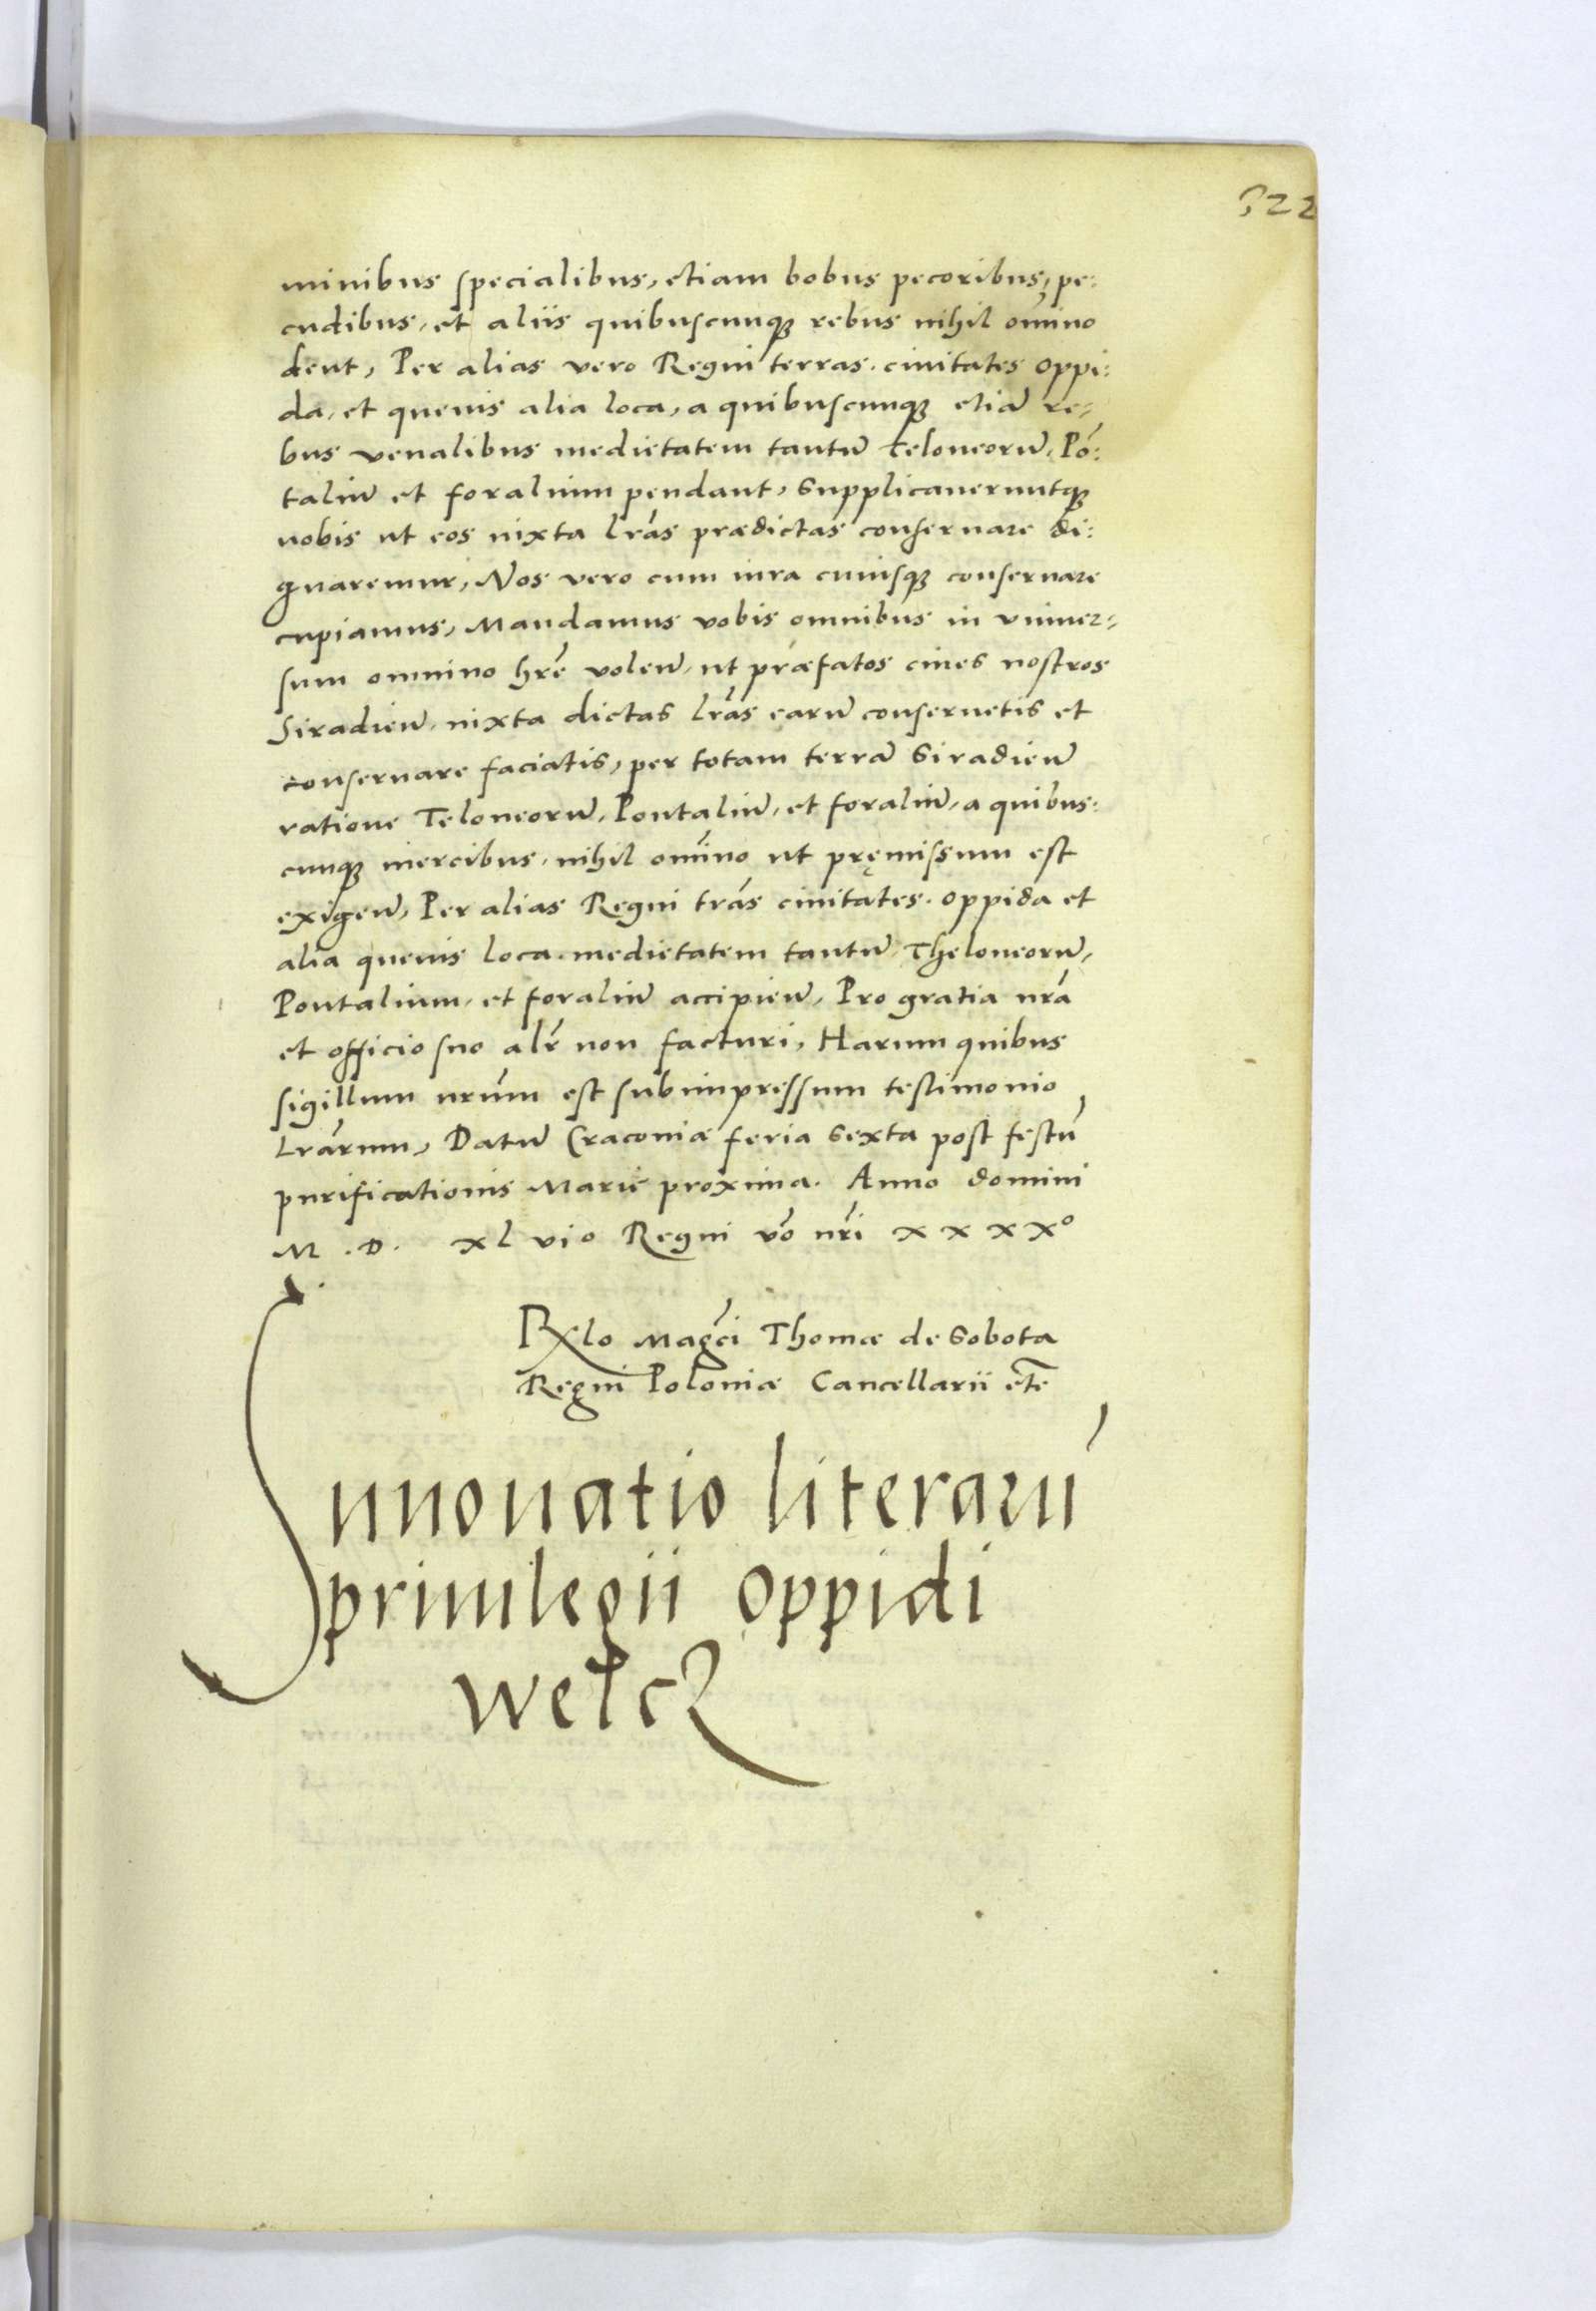 322
minibus specialibus, etiam bobus pecoribus, pe:
cudibus, et aliis quibuscunqȝ rebus nihil omĩno
dent, Per alias vero Regni terras. ciuitates oppi:
da, et queuis alia loca, a quibuscunqȝ etiã re-
bus venalibus medietatem tantũ teloneorũ, Põ:
taliũ et foralium pendant, supplicaueruntqȝ
nobis ut eos iuxta lr̃as prædictas conseruare di:
gnaremur, Nos vero cum iura cuiusqȝ conseruare
cupiamus, Mandamus vobis omnibus in vniuer-
sum omnino hr̃e volen̄, ut præfatos ciues nostros
Siradien̄, iuxta dictas lr̃as earũ conseruetis et
conseruare faciatis, per totam terrã Siradien̄
ratione Teloneorũ, Pontaliũ, et foraliũ, a quibus:
cunqȝ mercibus, nihil omĩno ut pręmissum est
exigen̄, Per alias Regni tr̃as ciuitates. oppida et
alia queuis loca. medietatem tantũ Theloneorũ,
Pontalium, et foraliũ accipien̄, Pro gratia nr̃a
et officio suo alr̃ non facturi, Harum quibus
sigillum nr̃um est subimpressum testimonio
Lr̃arum, Datũ Cracouiæ feria sexta post festũ
purificationis Marie proxima. Anno domini
M. D. xl vio Regni võ nr̃i xxxx°
Rlo Magci Thomæ de Sobota
Regni Poloniæ Cancellarii etc̃
Innouatio literarũ
priuilegii oppidi
welcz